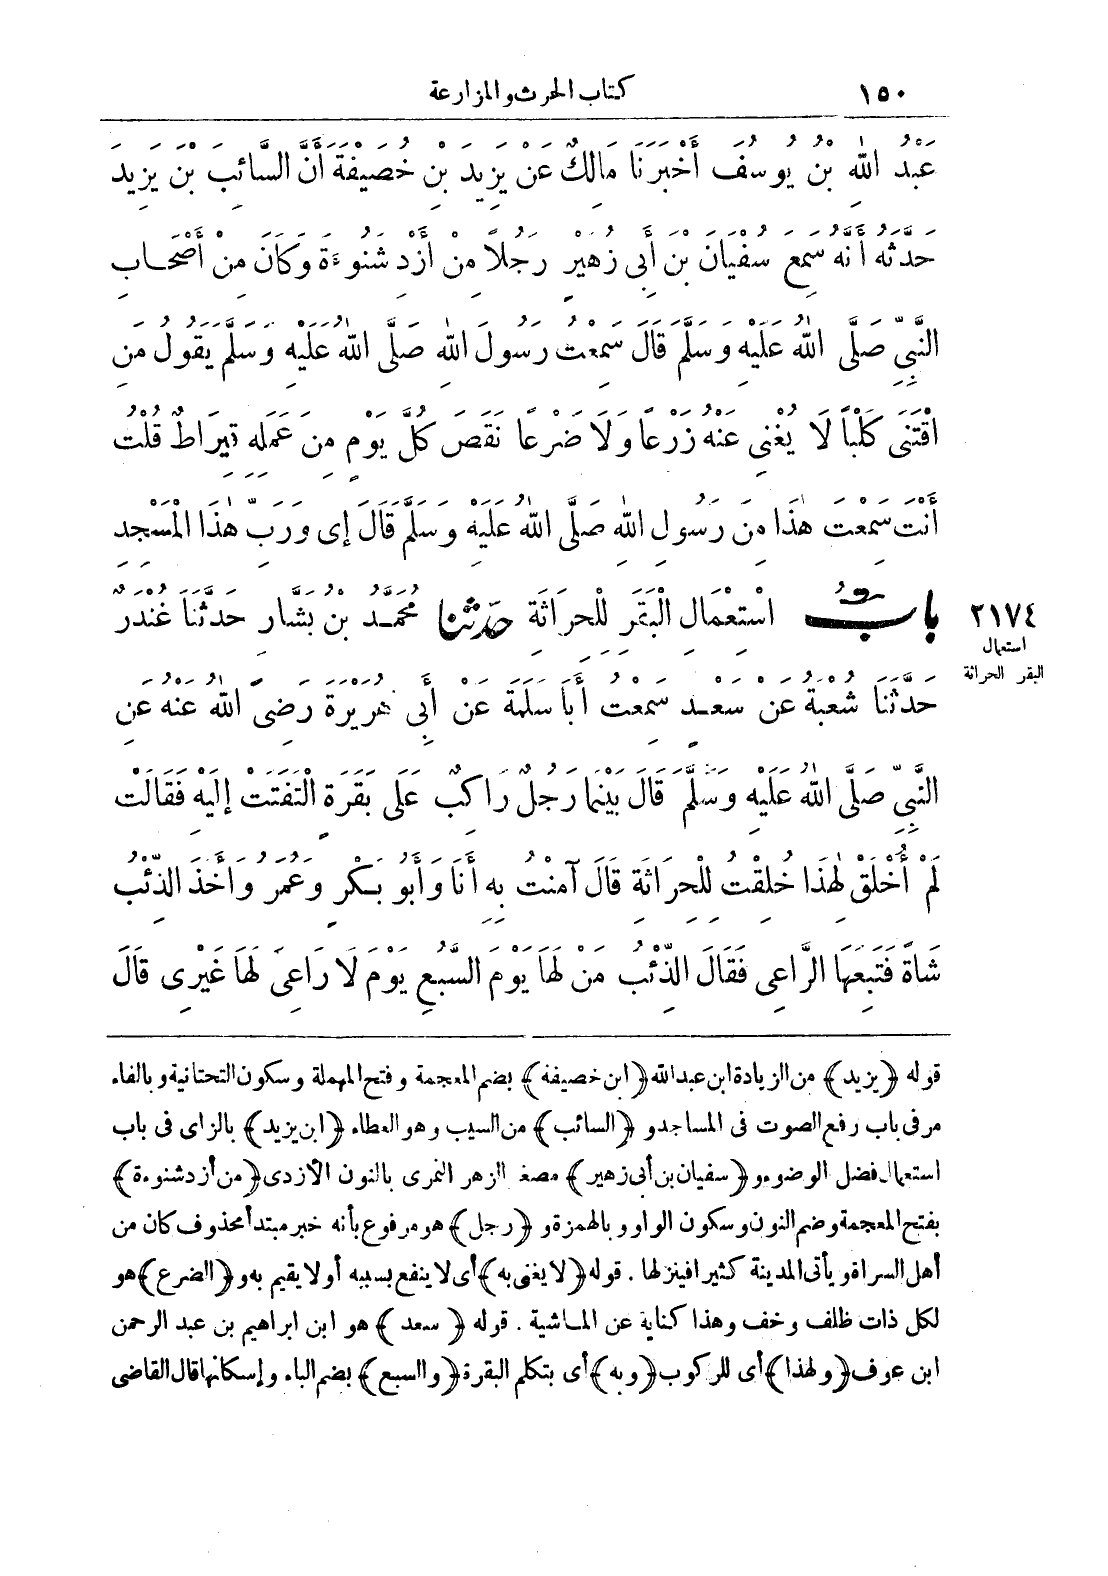 ١٥٠ كتاب الحرث والمزارعة
عَبْدُ اللهِ بْنُ يُوسُفَ أَخْبَرَنَا مَالِكٌ عَنْ يَزِيدَ بْنِ خُصَيْفَةَ أَنَّ السَّائِبَ بْنَ يَزِيدَ
حَدَّثَهُ أَنَّهُ سَمِعَ سُفْيَانَ بْنَ أَبِي زُهَيْرٍ رَجُلًا مِنْ أَزْدِ شَنُوءَةَ وَكَانَ مِنْ أَصْحَابِ
النَّبِيِّ صَلَّى اللهُ عَلَيْهِ وَسَلَّمَ قَالَ سَمِعْتُ رَسُولَ اللهِ صَلَّى اللهُ عَلَيْهِ وَسَلَّمَ يَقُولُ مَنِ
اقْتَنَى كَلْبًا لَا يُغْنِي عَنْهُ زَرْعًا وَلَا ضَرْعًا نَقَصَ كُلَّ يَوْمٍ مِنْ عَمَلِهِ قِيرَاطٌ قُلْتُ
أَنْتَ سَمِعْتَ هٰذَا مِنْ رَسُولِ اللهِ صَلَّى اللهُ عَلَيْهِ وَسَلَّمَ قَالَ إِي وَرَبِّ هٰذَا الْمَسْجِدِ
بَابُ اسْتِعْمَالِ الْبَقَرِ لِلْحِرَاثَةِ حَدَّثَنَا مُحَمَّدُ بْنُ بَشَّارٍ حَدَّثَنَا غُنْدَرٌ
٢١٧٤
استعمال
البقر الحراثة
حَدَّثَنَا شُعْبَةُ عَنْ سَعْدٍ سَمِعْتُ أَبَا سَلَمَةَ عَنْ أَبِي هُرَيْرَةَ رَضِيَ اللهُ عَنْهُ عَنِ
النَّبِيِّ صَلَّى اللهُ عَلَيْهِ وَسَلَّمَ قَالَ بَيْنَمَا رَجُلٌ رَاكِبٌ عَلَى بَقَرَةٍ الْتَفَتَتْ إِلَيْهِ فَقَالَتْ
لَمْ أُخْلَقْ لِهٰذَا خُلِقْتُ لِلْحِرَاثَةِ قَالَ آمَنْتُ بِهِ أَنَا وَأَبُو بَكْرٍ وَعُمَرُ وَأَخَذَ الذِّئْبُ
شَاةً فَتَبِعَهَا الرَّاعِي فَقَالَ الذِّئْبُ مَنْ لَهَا يَوْمَ السَّبُعِ يَوْمَ لَا رَاعِيَ لَهَا غَيْرِي قَالَ
قوله ﴿يزيد﴾ من الزيادة ابن عبد الله ﴿ابن خصيفة﴾ بضم المعجمة وفتح المهملة وسكون التحتانية وبالفاء
مر فى باب رفع الصوت فى المساجد و ﴿السائب﴾ من السيب وهو العطاء ﴿ابن يزيد﴾ بالزاى فى باب
استعمال فضل الوضوء و ﴿سفيان بن أبى زهير﴾ مصغر الزهر النمرى بالنون الأزدى ﴿من أزد شنوءة﴾
بفتح المعجمة وضم النون وسكون الواو وبالهمزة و ﴿رجل﴾ هو مرفوع بأنه خبر مبتدأ محذوف كان من
أهل السراة ويأتى المدينة كثيرا فينزلها . قوله ﴿لا يغنى به﴾ أى لا ينفع بسببه أو لا يقيم به و ﴿الضرع﴾ هو
لكل ذات ظلف وخف وهذا كناية عن الماشية . قوله ﴿سعد﴾ هو ابن ابراهيم بن عبد الرحمن
ابن عوف ﴿ولهذا﴾ أى للركوب ﴿وبه﴾ أى بتكلم البقرة ﴿والسبع﴾ بضم الباء وإسكانها قال القاضى